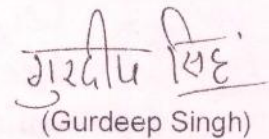 गुरदीप सिंह
(Gurdeep Singh)